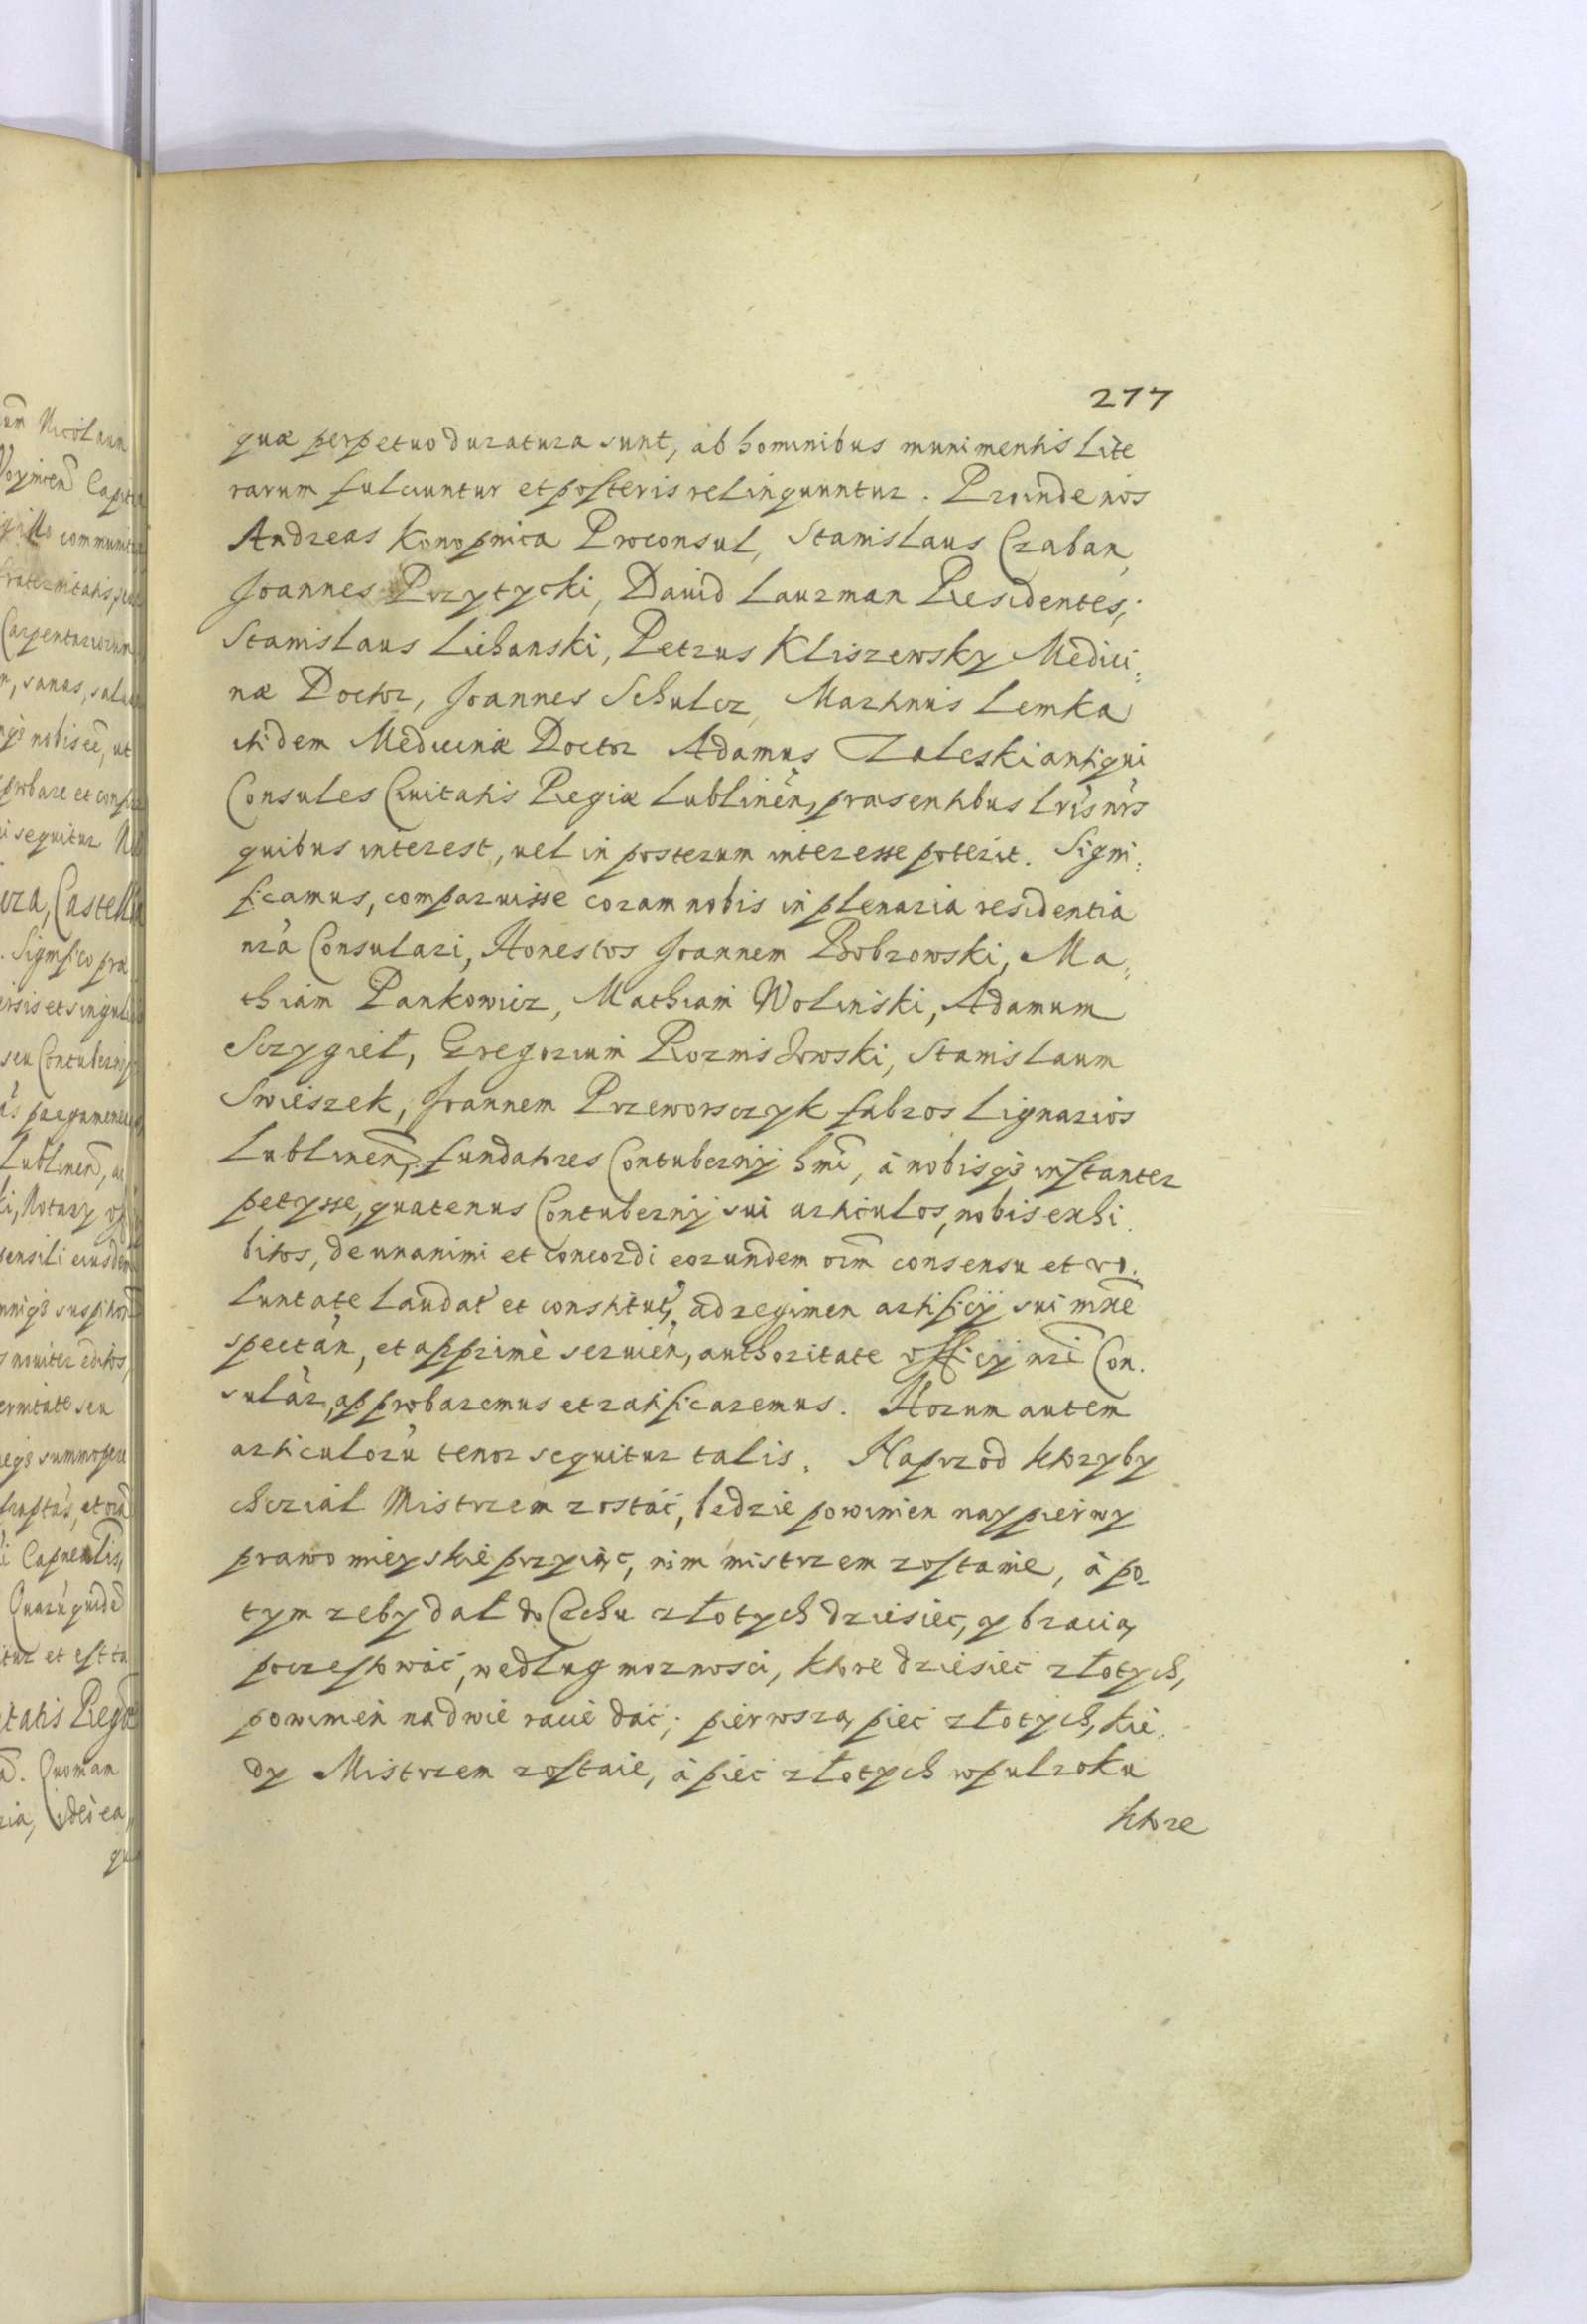 277
quæ perpetuo duratura sunt, ab hominibus munimentis Lite
rarum fulciuntur et posteris relinquuntur. Proinde nos
Andreas Konopnica Proconsul, Stanislaus Czaban,
Joannes Przytycki, Dauid Laurman Residentes;
Stanislaus Lichanski, Petrus Kliszewsky Medici:
næ Doctor, Joannes Schulcz, Martinus Lemka
itidem Medicinæ Doctor Adamus Zaleski antiqui
Consules Ciuitatis Regiæ Lublinen, præsentibus lris nris
quibus interest, uel in posterum interesse poterit. Signi:
ficamus, comparuisse coram nobis in plenaria residentia
nra Consulari, Honestos Joannem Bobrowski, Ma:
thiam Pankowicz, Mathiam Wolinski, Adamum
Sczygieł, Gregorium Rozmisłowski, Stanislaum
Swieszek, Joannem Przeworsczyk fabros Lignarios
Lublinen, fundatores Contubernij hmi, à nobisq3 instanter
petysse, quatenus Contubernij sui articulos, nobis exhi
bitos, de unanimi et concordi eorundem oim consensu et vo:
luntate laudat et constitut, ad regimen artificij sui mxe
spectan, et apprimè seruien, authoritate officij nri Con.
sular, approbaremus et ratificaremus. Horum autem
articuloru tenor sequitur talis. Naprzod ktoryby
chciał Mistrzem zostać, bedzie powinien naypierwy
prawo mieyskie przyiąc, nim mistrzem zostanie, à po-
tym zeby dał do Cechu złotych dziesiec, y bracią
poczestować, według moznosci, ktore dziesieć złotych,
powinien na dwie racie dać; pierwszą pieć złotych, kie.
dy Mistrzem zostaie, à pieć złotych w pul roku
ktore